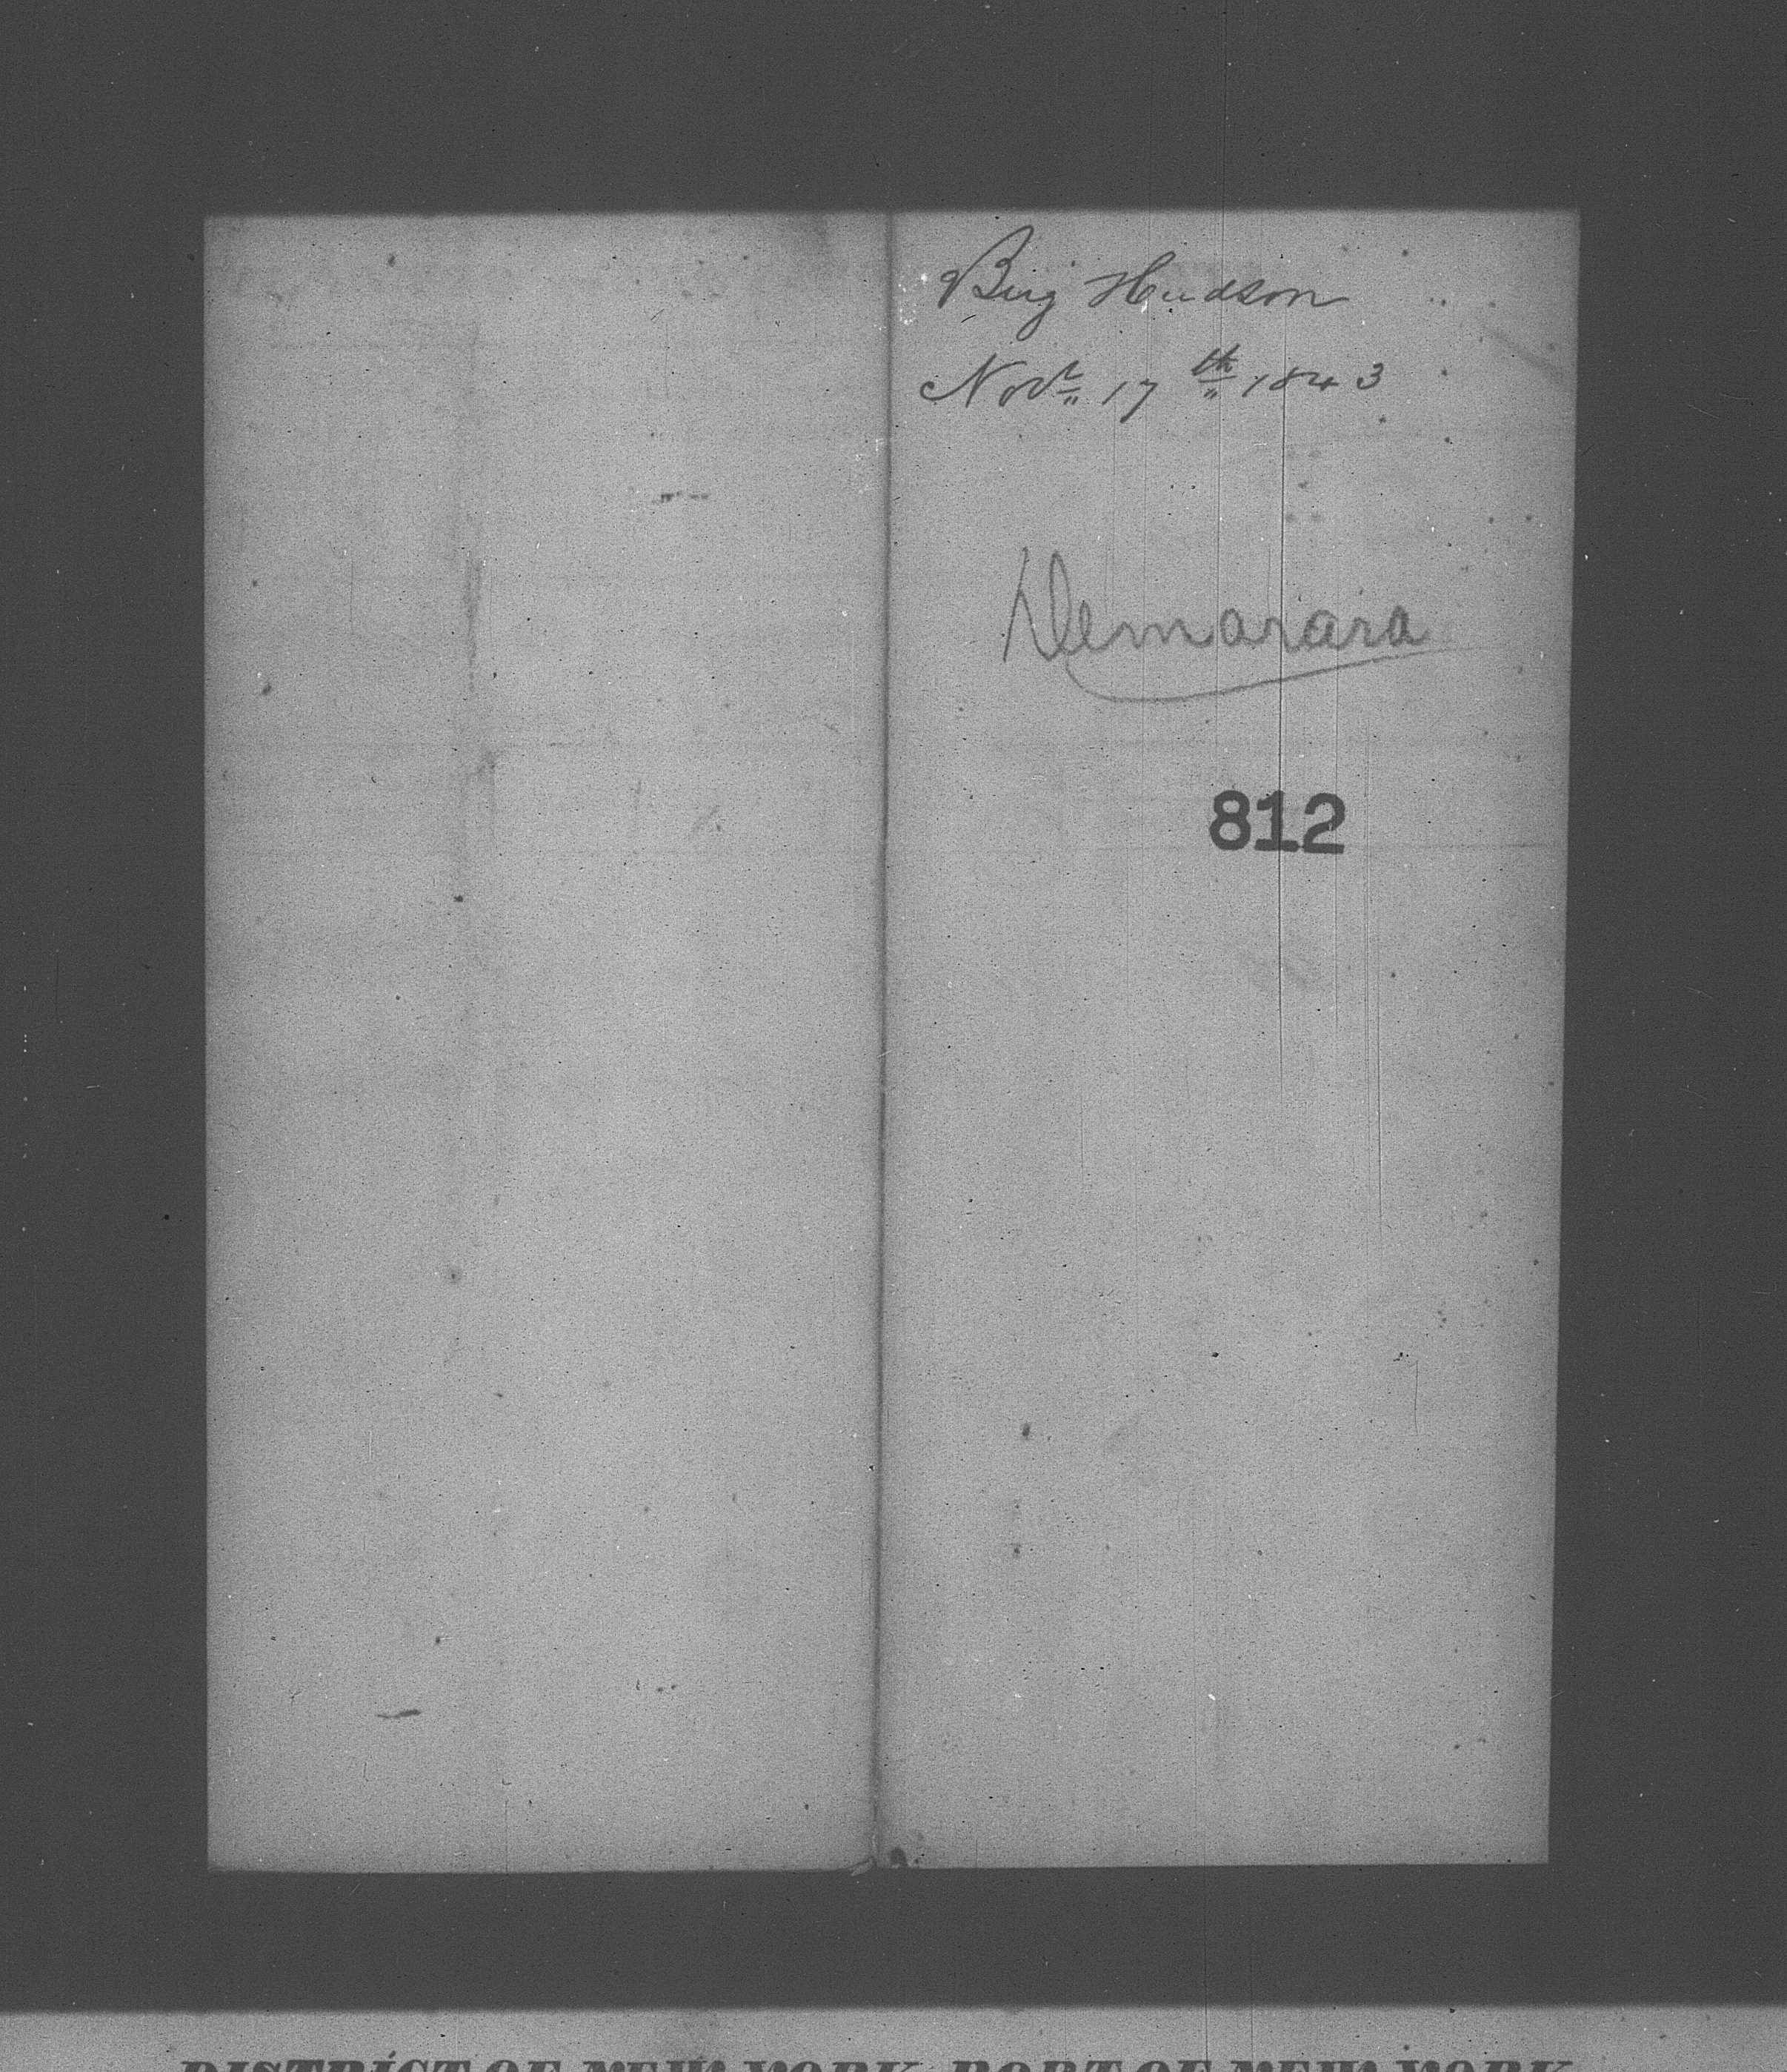 Brig Hudson
Novr 17th 1843
Demarara
812
DISTRICT OF NEW YORK, PORT OF NEW YORK